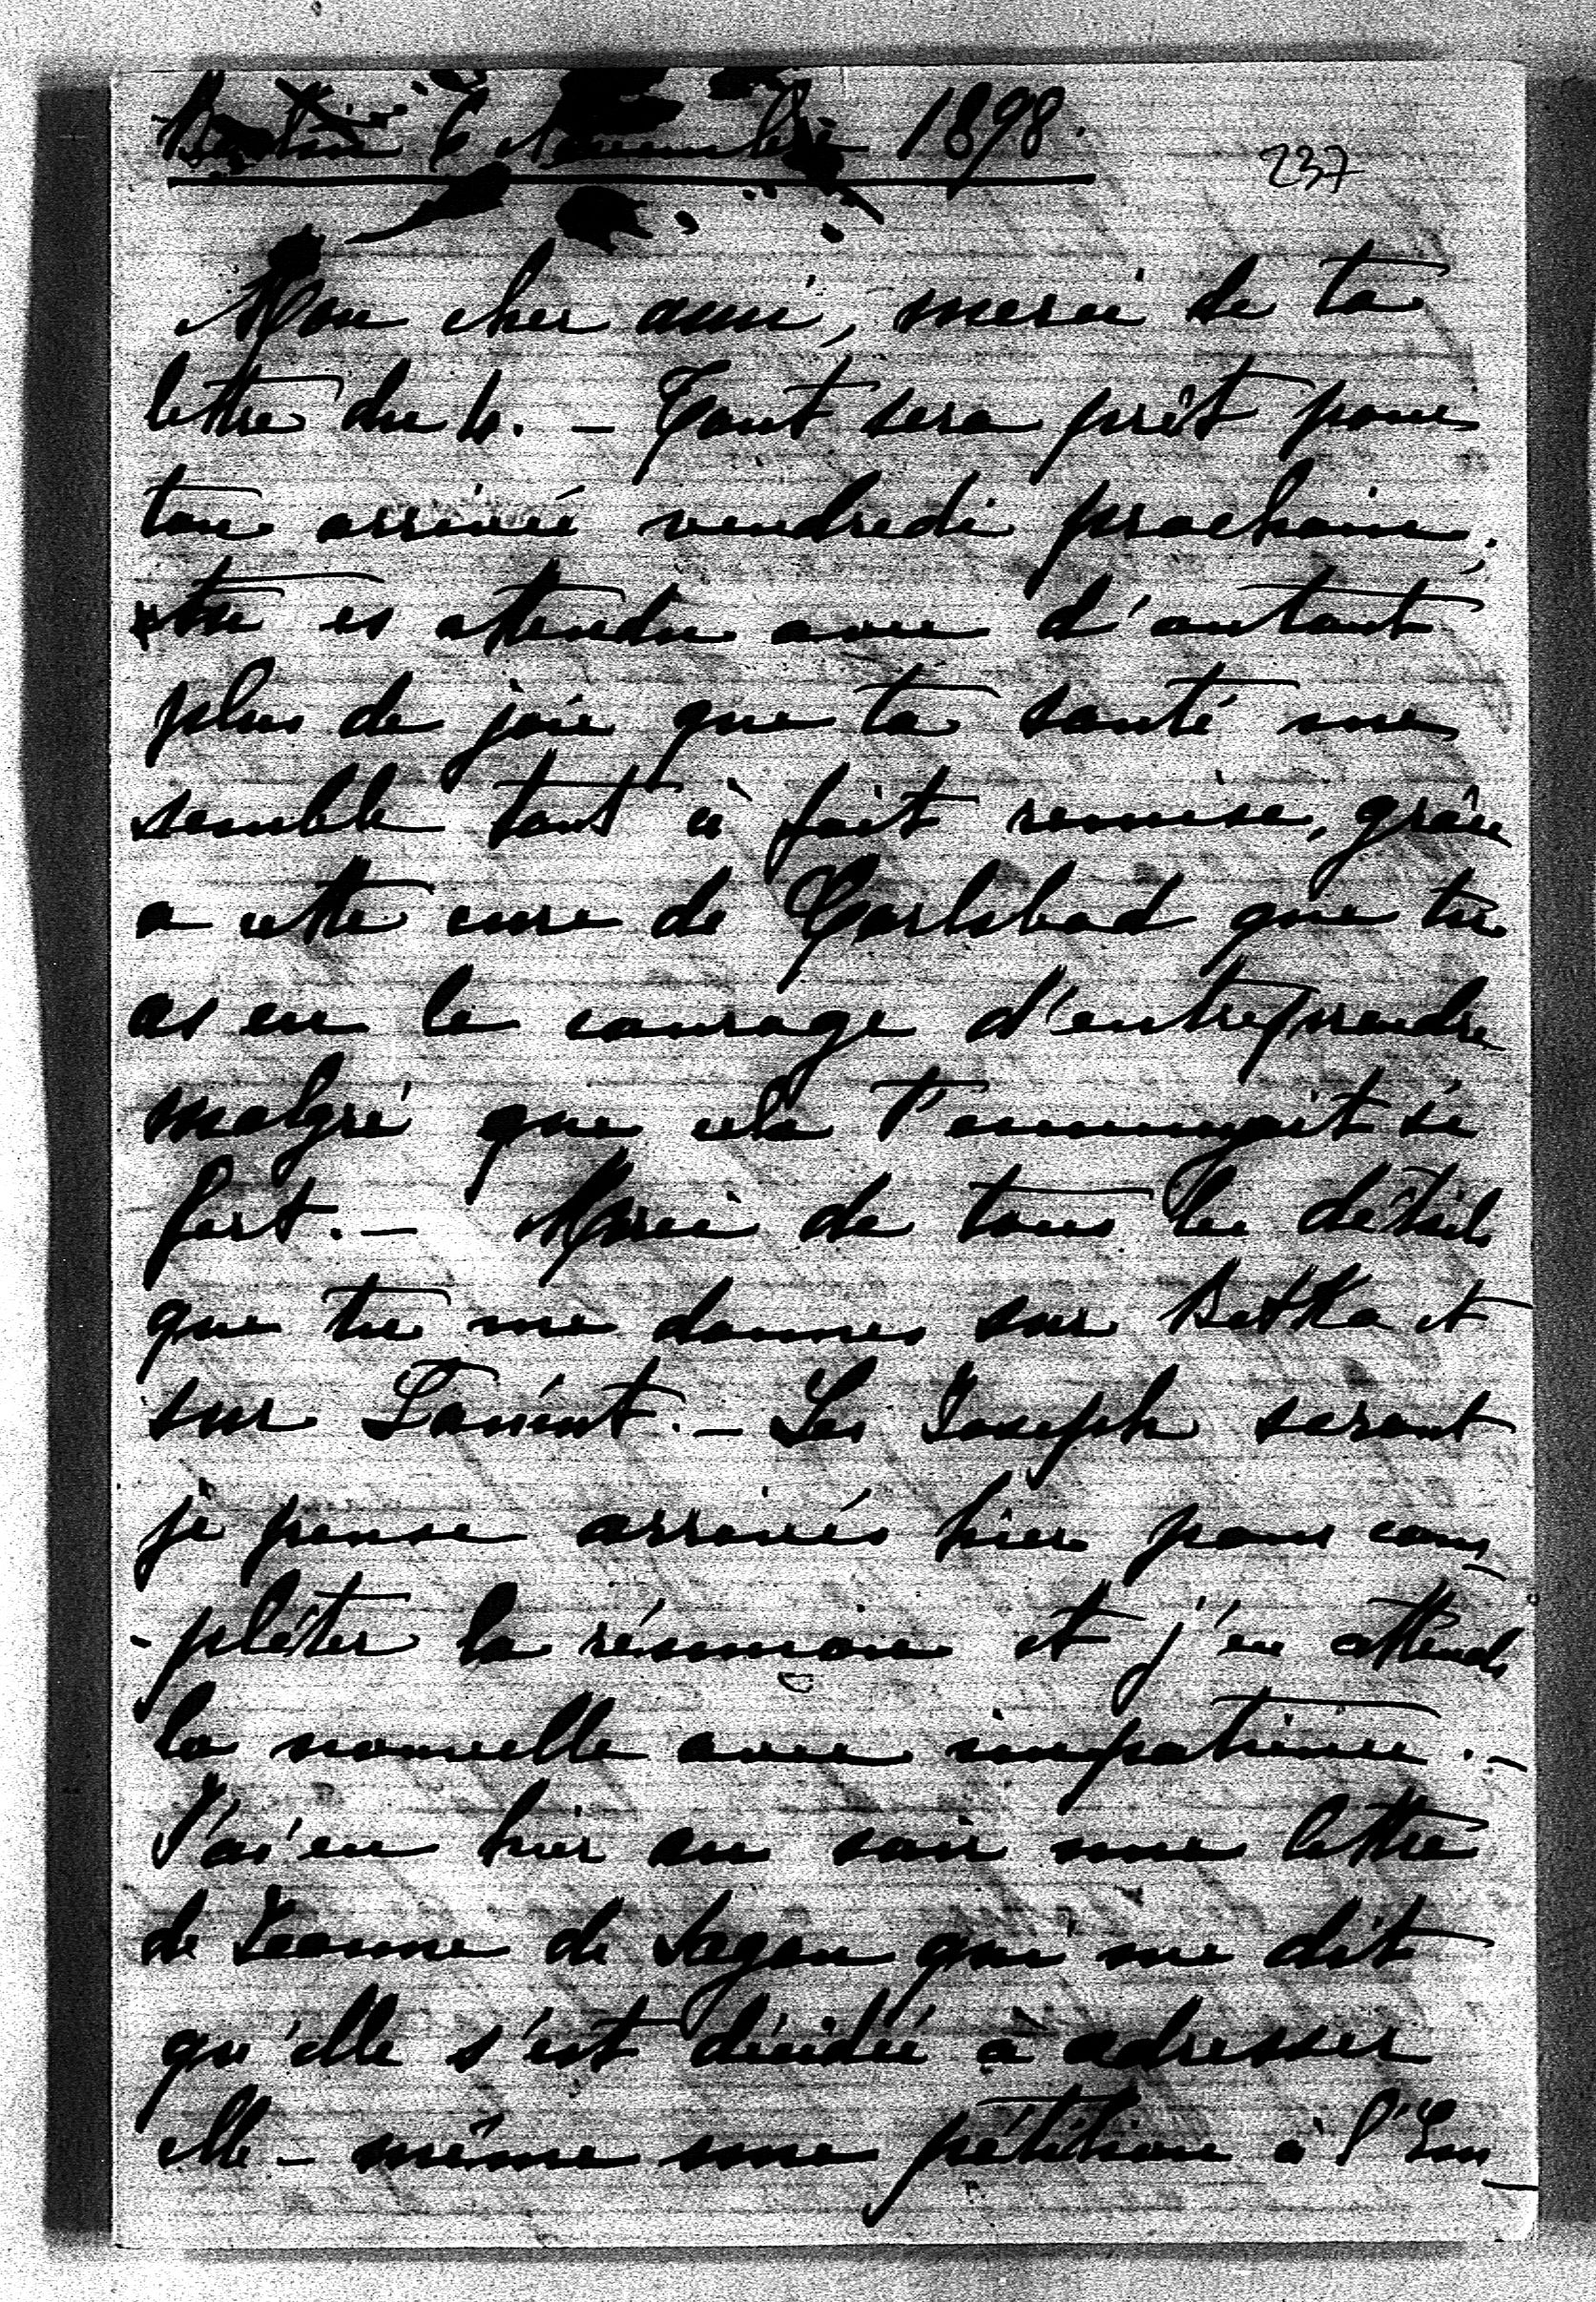 Berlin 6 Novembre 1898.
237
Mon cher ami, merci de ta
lettre du 4. – Tout sera prêt pour
ton arrivée vendredi prochain.
tu es attendu avec d'autant
plus de joie que ta santé me
semble tout à fait remise, grâce
a cette cure de Carlsbad que tu
as eu le courage d'entreprendre
malgré que cela t'ennuyait si
fort. – Merci de tous les détails
que tu me donnes sur Betka et
sur Lanint. – Les Joseph seront
je pense arrivés hier pour com-
-pléter la réunion et j'en attends
la nouvelle avec impatience. –
J'ai eu hier au soir une lettre
de Jeanne de Sagan qui me dit
qu'elle s'est décidée à adresser
elle-même une pétition à l'Em-